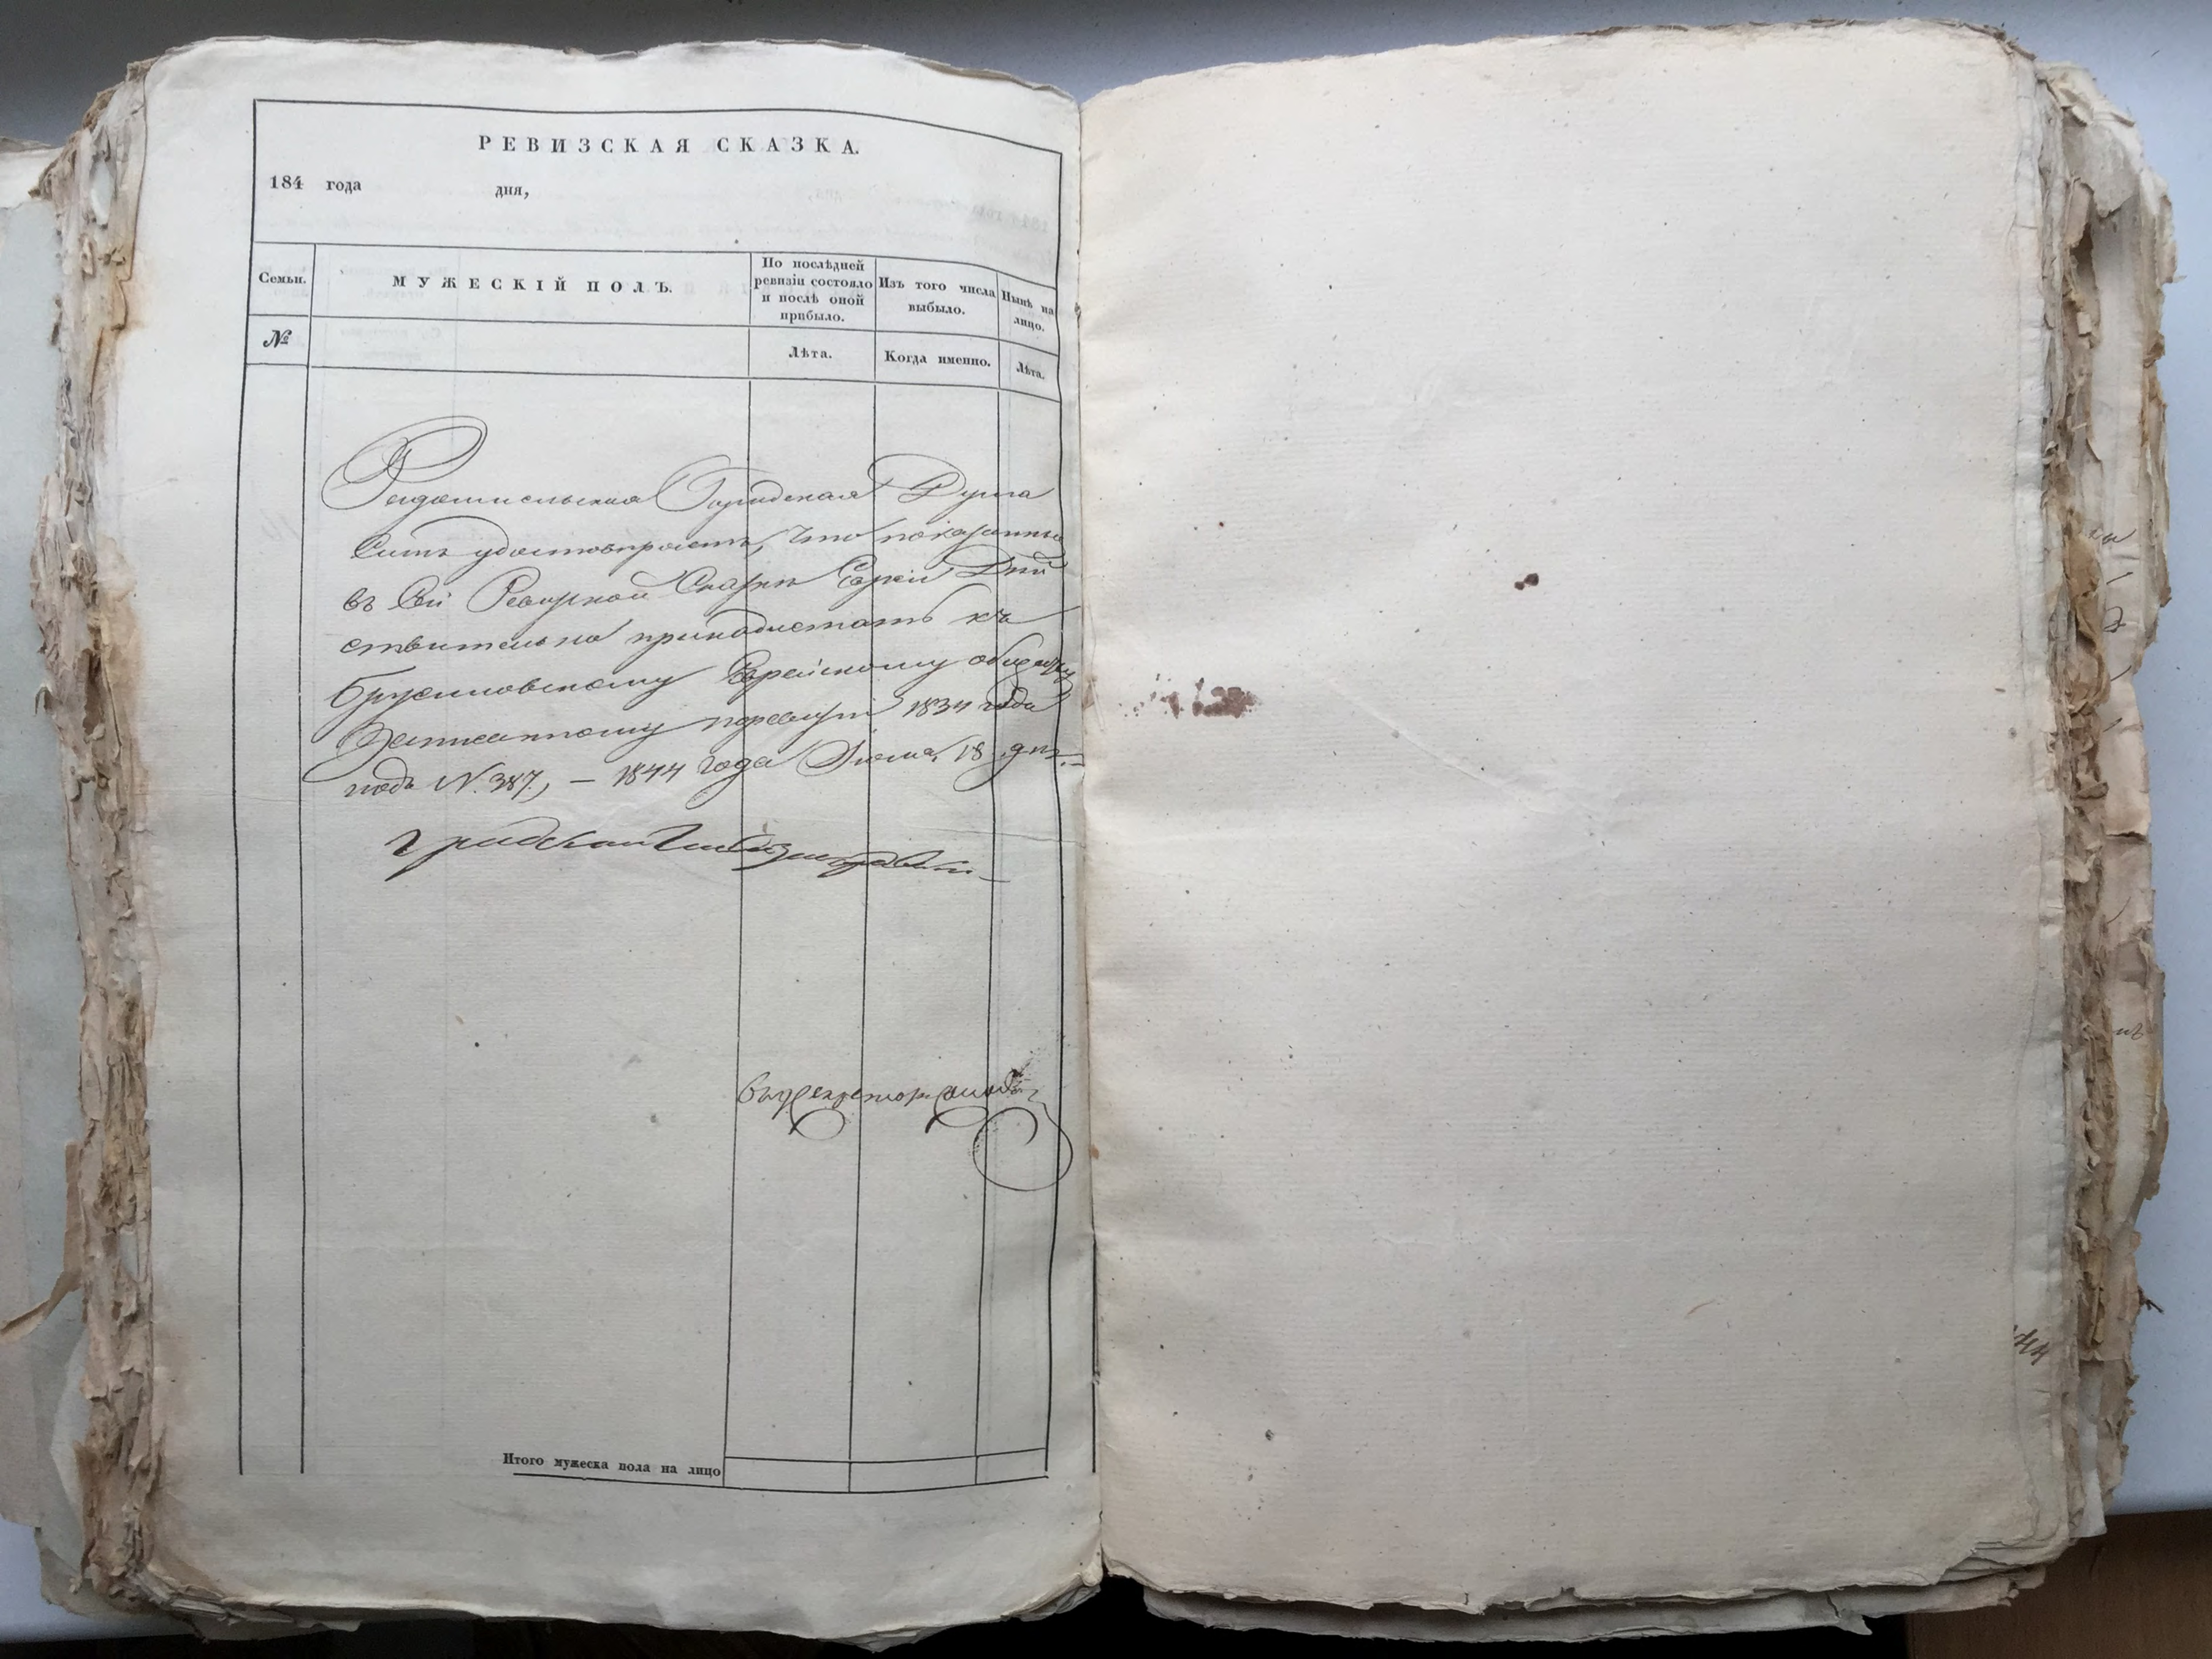 РЕВИЗСКАЯ СКАЗКА.
184 года дня,
Семьи. МУЖЕСКІЙ ПОЛЪ.
По послѣдней ревизіи состояло и послѣ оной прибыло.
Изъ того числа выбыло.
Нынѣ на лицо.
№ Лѣта. Когда именно. Лѣта.
Радомысльская Городская Дума
Симъ удостовѣряетъ, что показанные
въ Сей Ревизкой Сказкѣ Евреи Дѣй
ствительно принадлежатъ къ
Брусиловскому Еврейскому обществу
Записанному поревизіи 1834 года
подъ N. 387, – 1844 года Іюня 18 дня.
Градской Глава
Секретарь
Итого мужеска пола на лицо